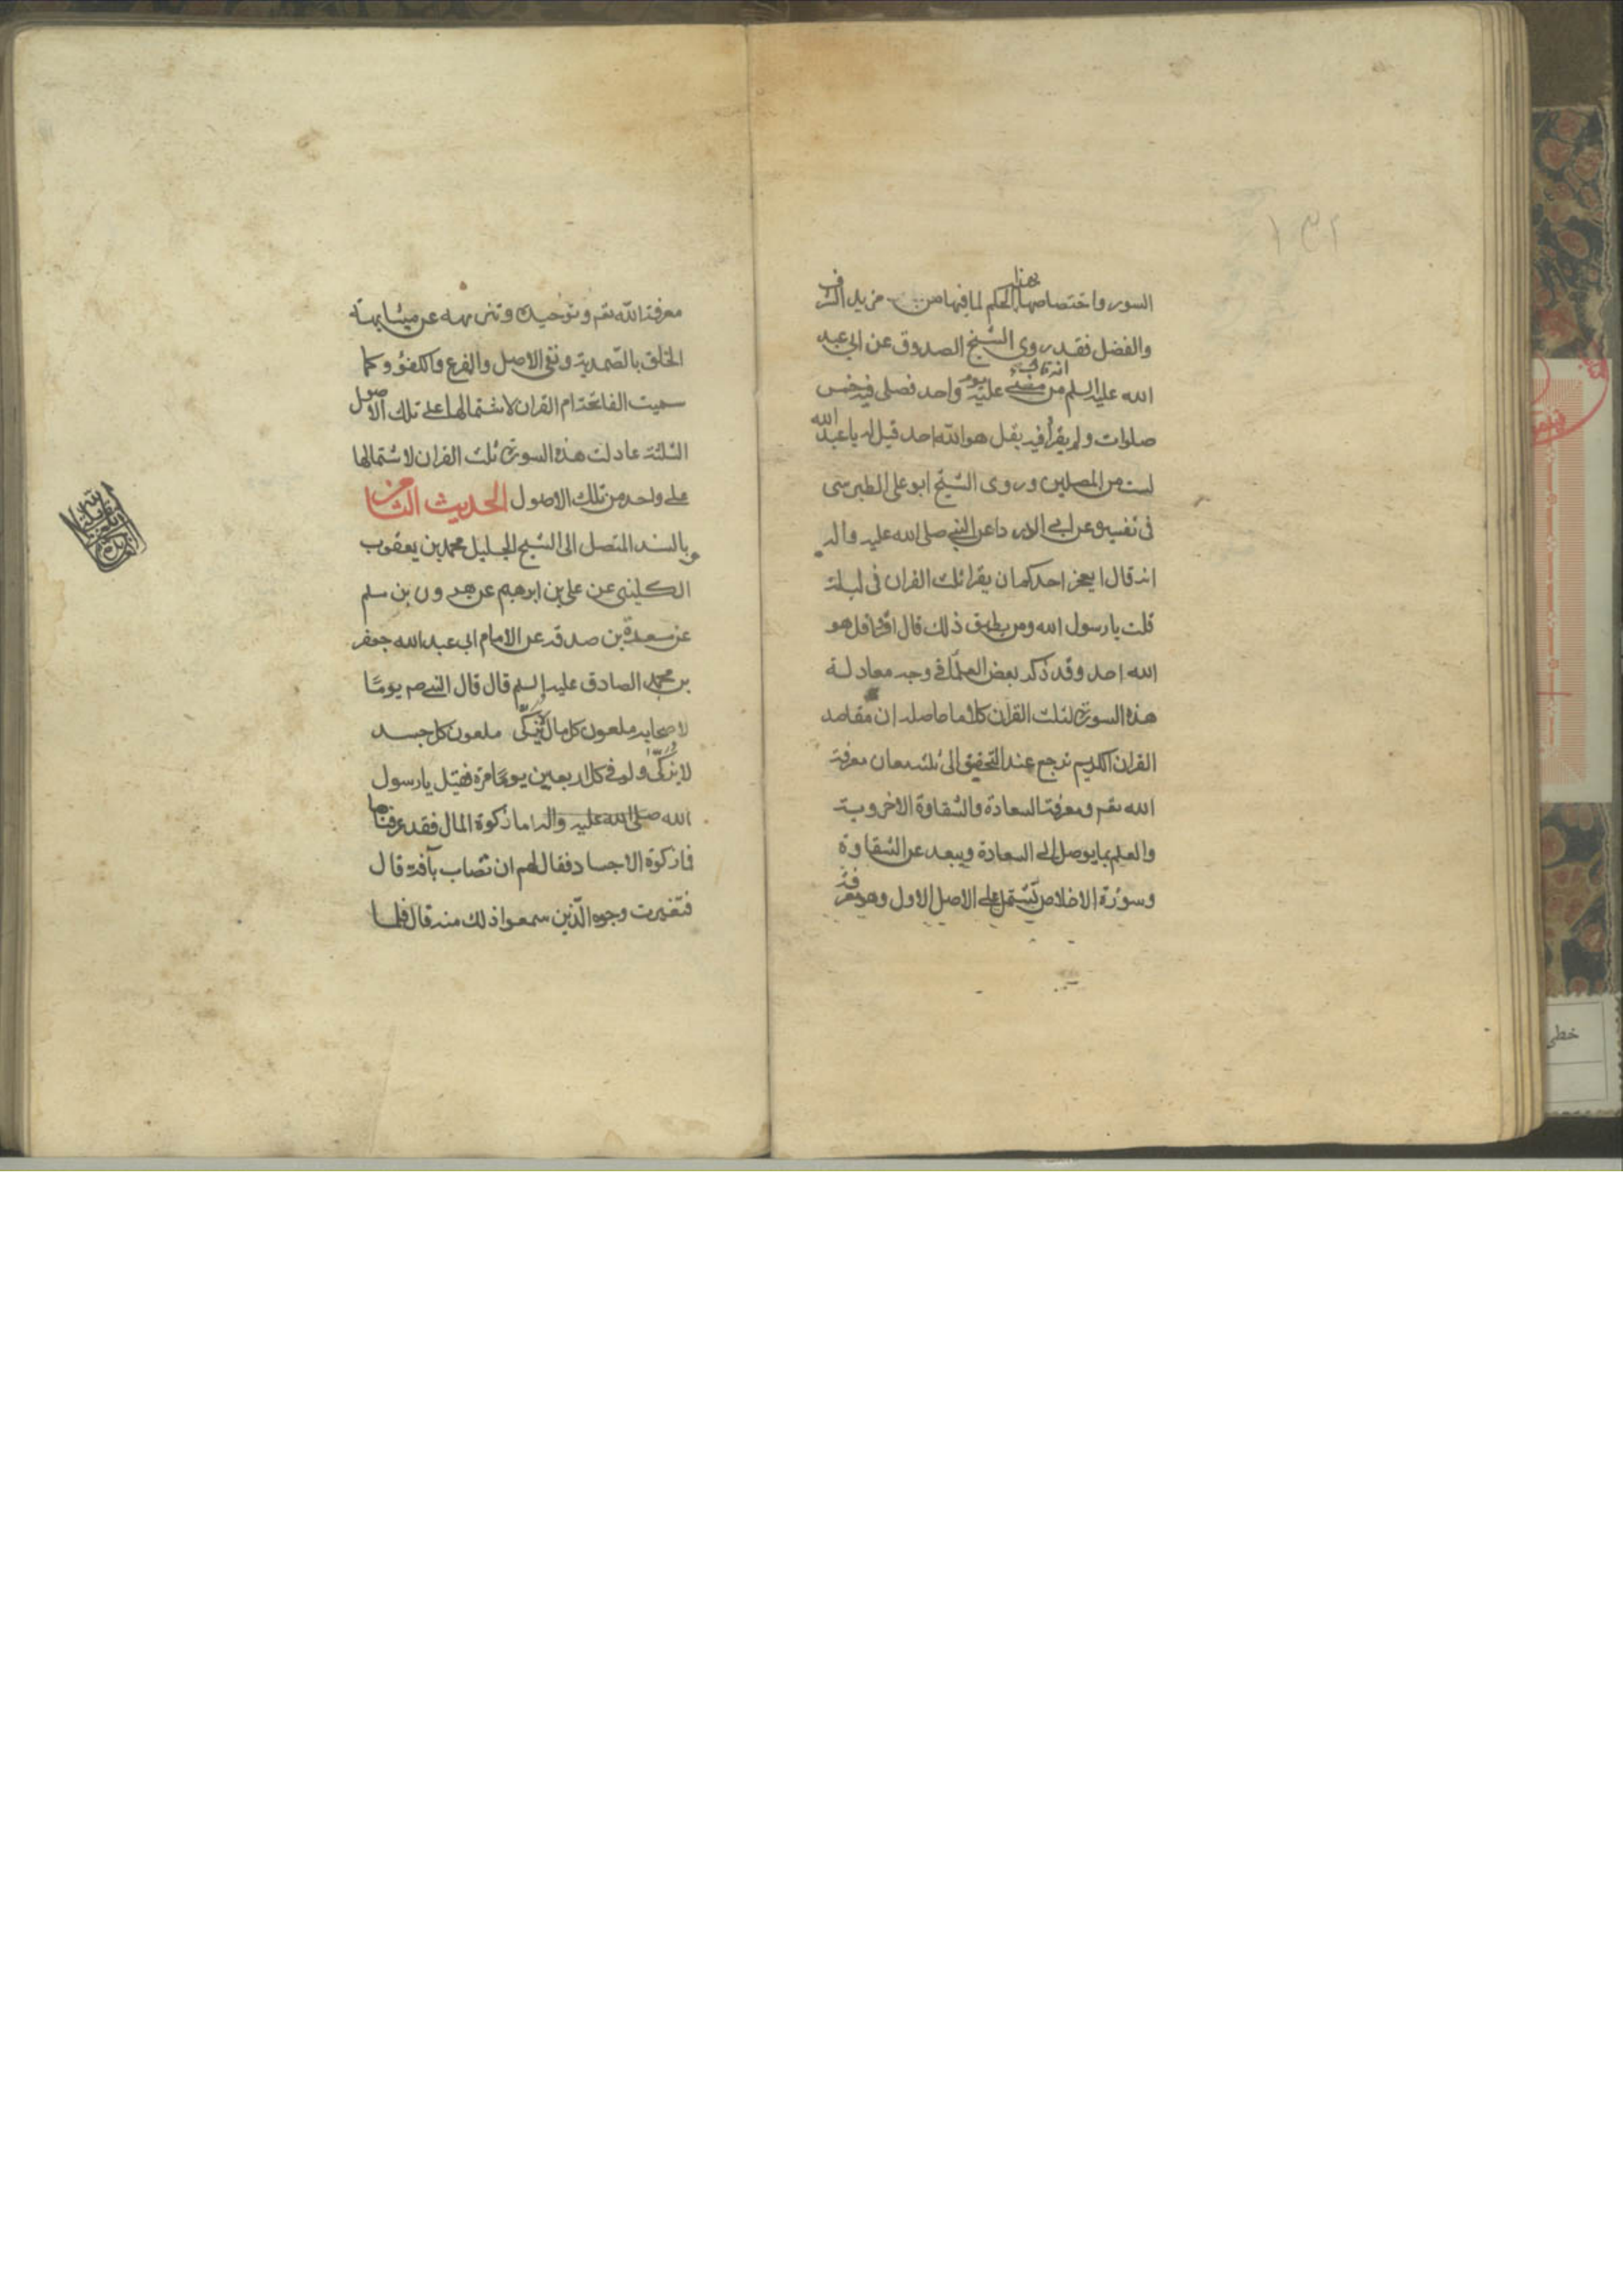 السور واختصاصها بهذا الحكم لما فيها من مزيد الشرف
والفضل فقد روى الشيخ الصدوق عن ابي عبد
الله عليه السلم انه قال من مضى عليه يوم واحد فصلى فيه خمس
صلوات ولم يقرأ فيه بقل هو الله احد قيل له يا عبد الله
لست من المصلين وروى الشيخ ابو علي الطبرسي
في تفسيره عن ابي الدرداء عن النبي صلى الله عليه واله
انه قال ايعجز احدكم ان يقرا ثلث القران في ليلة
قلت يا رسول الله ومن يطيق ذلك قال اقرؤا قل هو
الله احد وقد ذكر بعض العلماء في وجه معادلة
هذه السورة لثلث القران كلاما حاصله ان مقاصد
القران الكريم ترجع عند التحقيق الى ثلثة معان معرفة
الله تعم ومعرفة السعادة والشقاوة الاخروية
والعلم بما يوصل الى السعادة ويبعد عن الشقاوة
وسورة الاخلاص تشتمل على الاصل الاول وهو معرفة
معرفة الله تعم وتوحيده وتنزيهه عن مشابهة
الخلق بالصمدية ونفي الاصل والفرع والكفؤ وكما
سميت الفاتحة ام القران لاشتمالها على تلك الاصول
الثلثة عادلت هذه السورة ثلث القران لاشتمالها
على واحد من تلك الاصول الحديث الثامن
وبالسند المتصل الى الشيخ الجليل محمد بن يعقوب
الكليني عن علي بن ابرهيم عن هرون بن مسلم
عن مسعدة بن صدقة عن الامام ابي عبد الله جعفر
بن محمد الصادق عليه السلم قال قال النبي صم يوما
لاصحابه ملعون كل مال لا يزكى ملعون كل جسد
لا يزكى ولو في كل اربعين يوما مرة فقيل يا رسول
الله صلى الله عليه واله اما زكوة المال فقد عرفناها
فما زكوة الاجساد فقال لهم ان تصاب بآفة قال
فتغيرت وجوه الذين سمعوا ذلك منه قال فلما
خطي